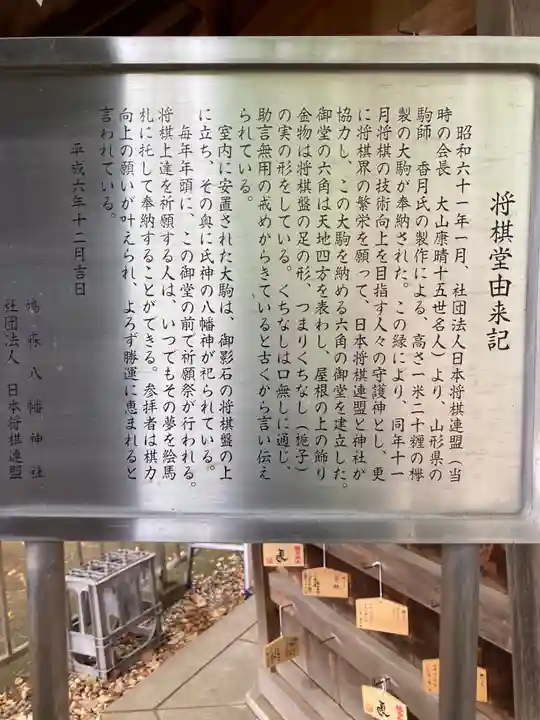 将棋堂由来記
昭和六十一年一月、社団法人日本将棋連盟(当
時の会長 大山康晴十五世名人)より、山形県の
駒師 香月氏の製作による、高さ一米二十糎の欅
製の大駒が奉納された。この縁により、同年十一
月将棋の技術向上を目指す人々の守護神とし、更
に将棋界の繁栄を願って、日本将棋連盟と神社が
協力し、この大駒を納める六角の御堂を建立した。
御堂の六角は天地四方を表わし、屋根の上の飾り
金物は将棋盤の足の形、つまりくちなし(梔子)
の実の形をしている。くちなしは口無しに通じ、
助言無用の戒めからきていると古くから言い伝え
られている。
室内に安置された大駒は、御影石の将棋盤の上
に立ち、その奥に氏神の八幡神が祀られている。
毎年年頭に、この御堂の前で祈願祭が行われる。
将棋上達を祈願する人は、いつでもその夢を絵馬
札に托して奉納することができる。参拝者は棋力
向上の願いが叶えられ、よろず勝運に恵まれると
言われている。
平成六年十二月吉日
鳩森八幡神社
社団法人 日本将棋連盟